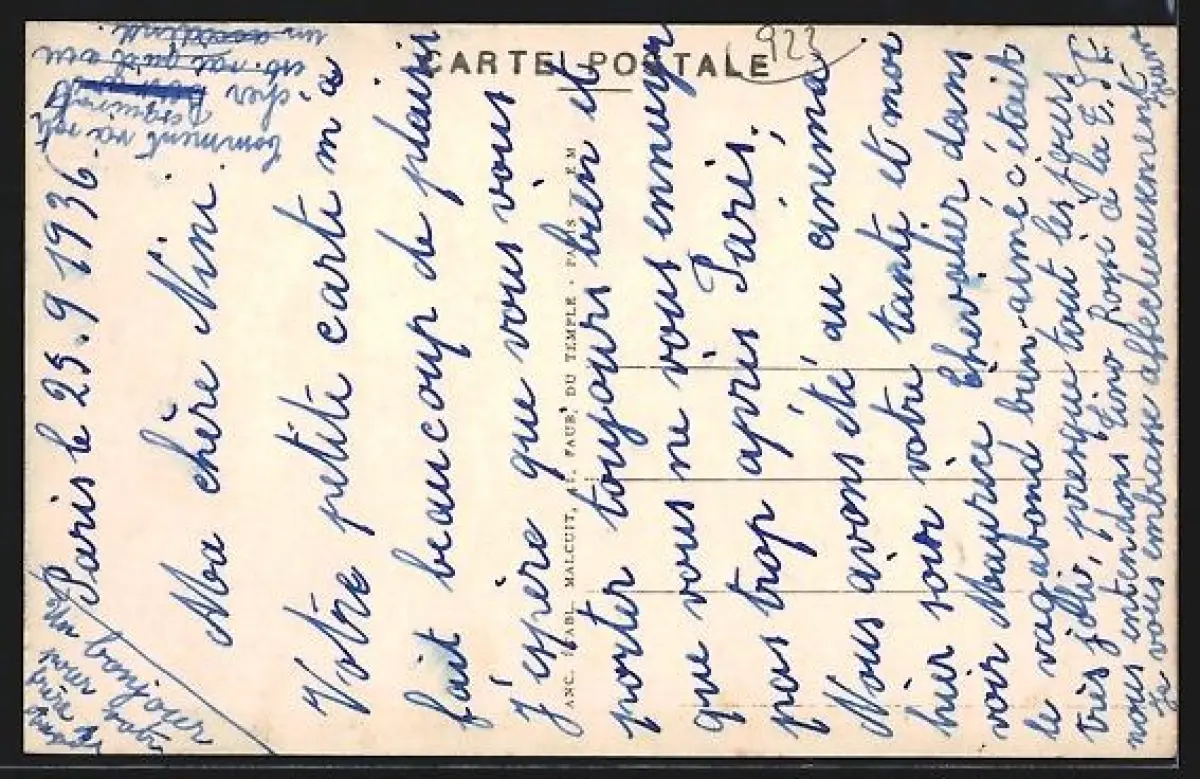 Paris le 25.9 1936.
Ma chère Nini.
Votre petite carte m'a
fait beaucoup de plaisir
J'espère que vous vous
porter toujours bien et
que vous ne vous ennuyer
pas trop après Paris.
Nous avons été au cinema
hier soir votre tante et moi
voir Maurice Chevalier dans
le vagabond bien-aimé c'était
très jolie, presque tout les jours
nous entendons Tino Rossi à la T.S.F.
Je vous embrasse affectueusement
Un bonjour
pour votre
Comment va votre
cher
un accident.
CARTE POSTALE
ANC. ÉTABL. MALCUIT, FAUB. DU TEMPLE - PARIS
923